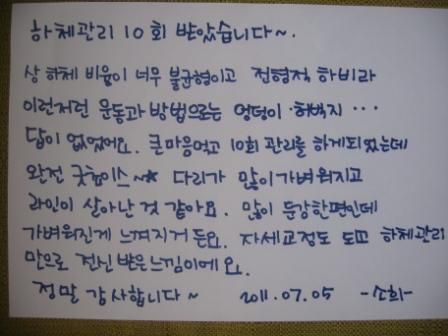 하체관리 10회 받았습니다~.
상 하체 비율이 너무 불균형이고 전형적 하비라
이런저런 운동과 방법으로는 엉덩이·허벅지 ···
답이 없었어요. 큰마음먹고 10회 관리를 하게되었는데
완전 굿초이스~* 다리가 많이가벼워지고
라인이 살아난 것 같아요. 많이 둔감한편인데
가벼워진게 느껴지거든요. 자세교정도 되고 하체관리
만으로 전신 받은느낌이에요.
정말 감사합니다~ 2011.07.05 -소희-